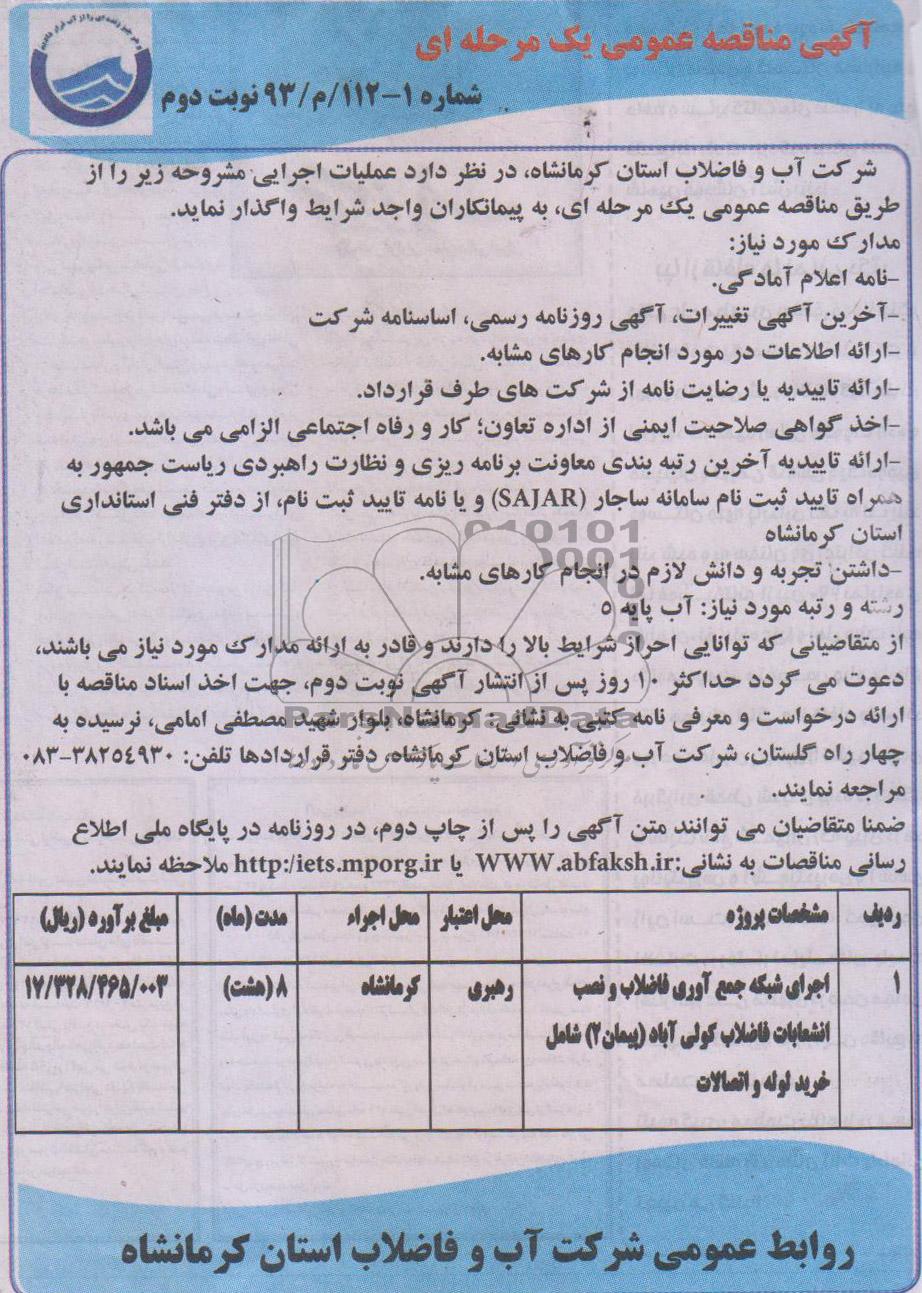 آگهی مناقصه عمومی یک مرحله ای
شماره ۱-۱۱۲/م/۹۳ نوبت دوم
شرکت آب و فاضلاب استان کرمانشاه، در نظر دارد عملیات اجرایی مشروحه زیر را از
طریق مناقصه عمومی یک مرحله ای، به پیمانکاران واجد شرایط واگذار نماید.
مدارک مورد نیاز:
-نامه اعلام آمادگی.
-آخرین آگهی تغییرات، آگهی روزنامه رسمی، اساسنامه شرکت
-ارائه اطلاعات در مورد انجام کارهای مشابه.
-ارائه تاییدیه یا رضایت نامه از شرکت های طرف قرارداد.
-اخذ گواهی صلاحیت ایمنی از اداره تعاون؛ کار و رفاه اجتماعی الزامی می باشد.
-ارائه تاییدیه آخرین رتبه بندی معاونت برنامه ریزی و نظارت راهبردی ریاست جمهور به
همراه تایید ثبت نام سامانه ساجار (SAJAR) و یا نامه تایید ثبت نام، از دفتر فنی استانداری
استان کرمانشاه
-داشتن تجربه و دانش لازم در انجام کارهای مشابه.
رشته و رتبه مورد نیاز: آب پایه ۵
از متقاضیانی که توانایی احراز شرایط بالا را دارند و قادر به ارائه مدارک مورد نیاز می باشند،
دعوت می گردد حداکثر ۱۰ روز پس از انتشار آگهی نوبت دوم، جهت اخذ اسناد مناقصه با
ارائه درخواست و معرفی نامه کتبی به نشانی: کرمانشاه، بلوار شهید مصطفی امامی، نرسیده به
چهار راه گلستان، شرکت آب و فاضلاب استان کرمانشاه، دفتر قراردادها تلفن: ۳۸۲۵٤۹۳۰-۰۸۳
مراجعه نمایند.
ضمنا متقاضیان می توانند متن آگهی را پس از چاپ دوم، در روزنامه در پایگاه ملی اطلاع
رسانی مناقصات به نشانی:WWW.abfaksh.ir یا http:/iets.mporg.ir ملاحظه نمایند.
ردیف مشخصات پروژه محل اعتبار محل اجراء مدت (ماه) مبلغ برآورد (ریال)
۱ اجرای شبکه جمع آوری فاضلاب و نصب رهبری کرمانشاه ۸ (هشت) ۱۷/۳۲۸/۴۶۵/۰۰۳
انشعابات فاضلاب کولی آباد (پیمان۲) شامل
خرید لوله و اتصالات
روابط عمومی شرکت آب و فاضلاب استان کرمانشاه
ParsNamadData